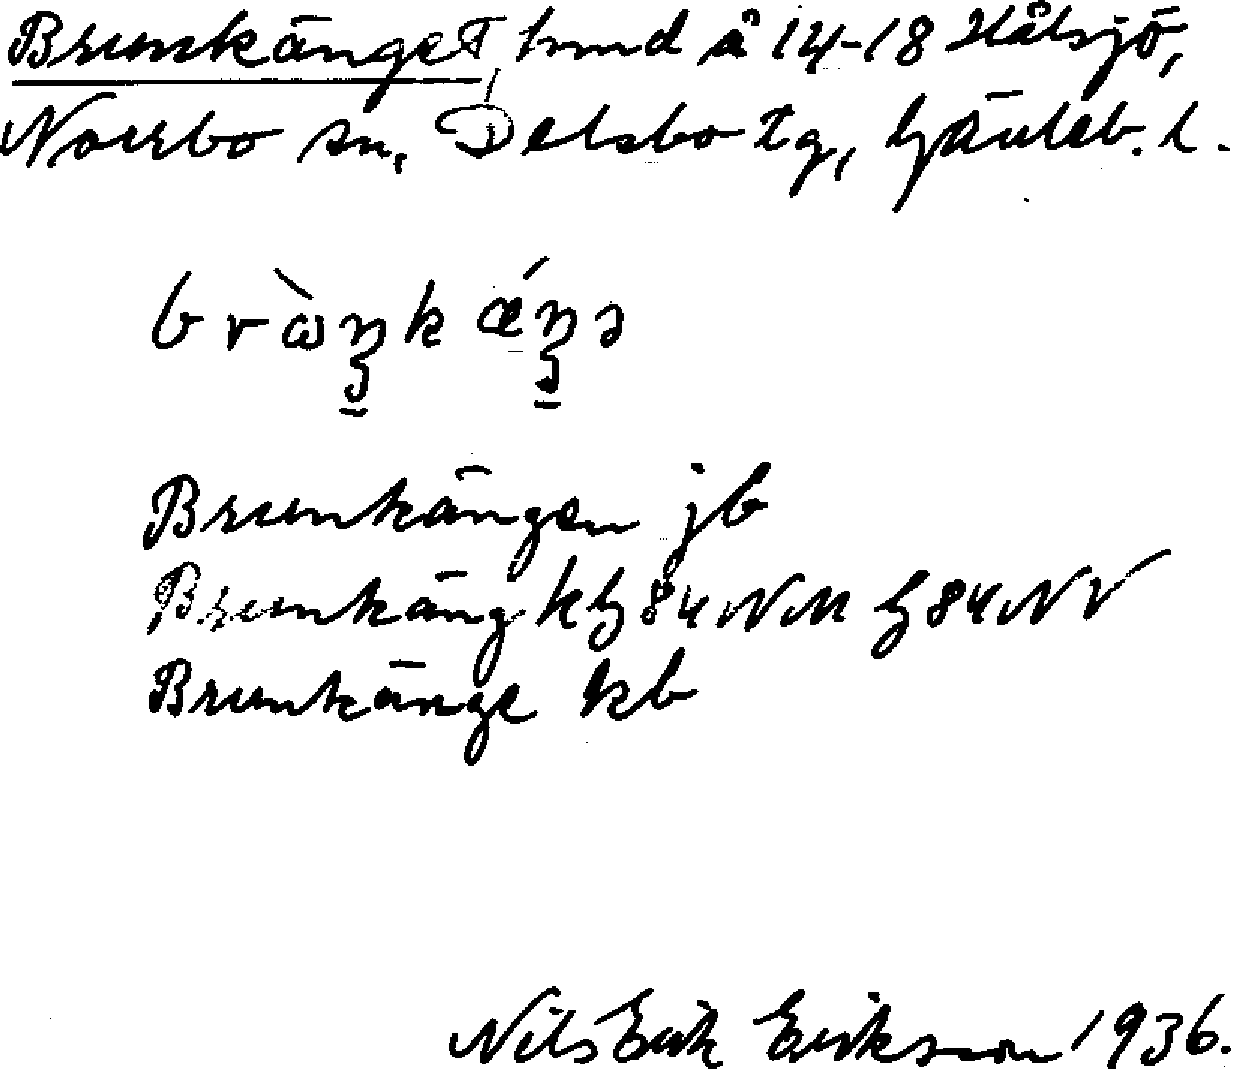 Brunkänget, hmd å 14-18 Hålsjö,
Norrbo sn, Delsbo tg, Gävleb. l.
Brunkängen jb
Brunkäng 84 NM 84 NV
Brunkänge kb
Nils Erik Erikson 1936.